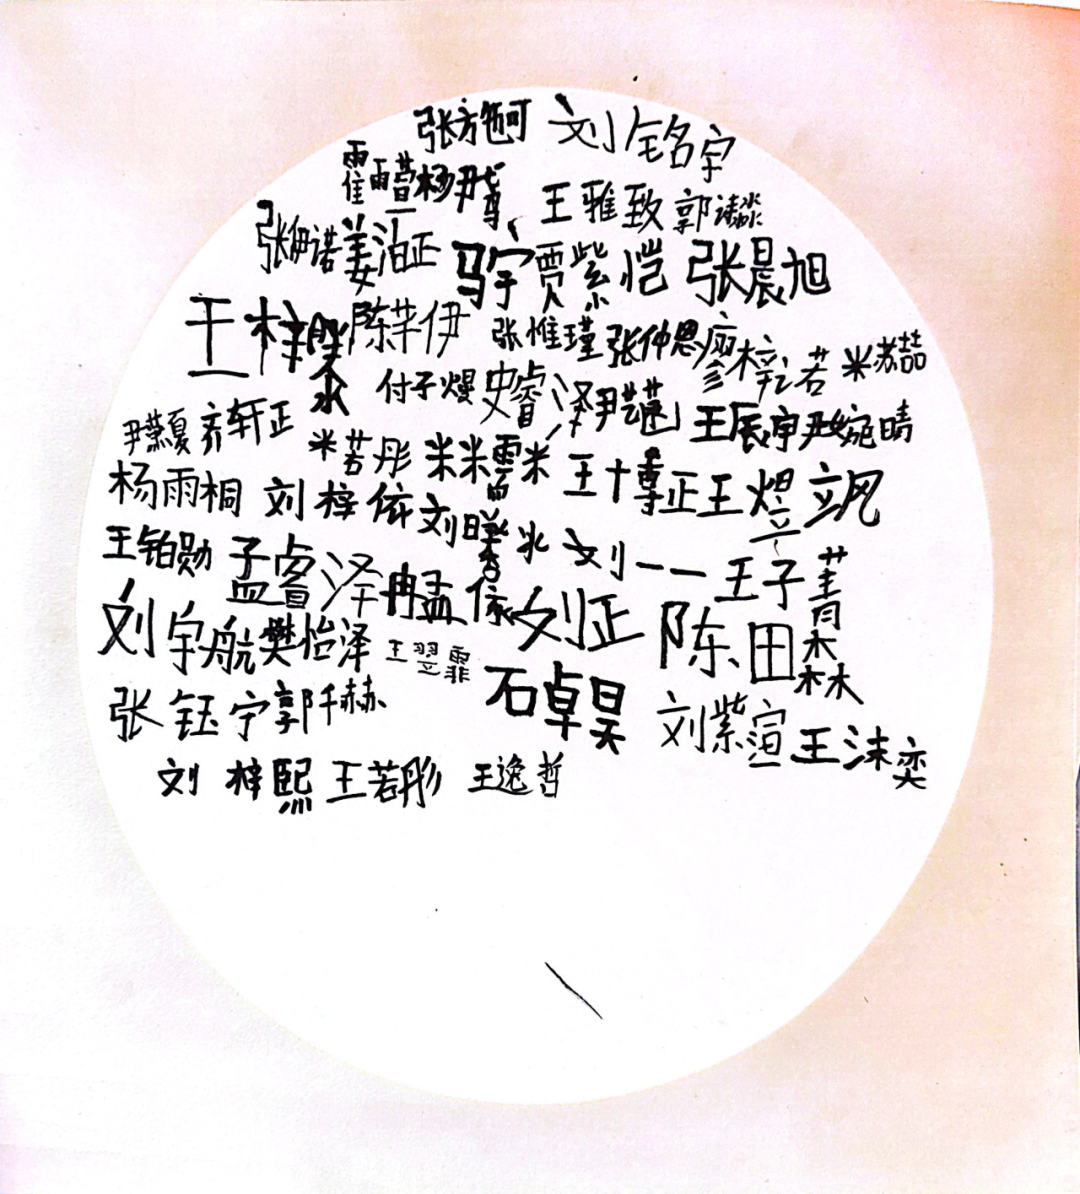 张方 刘铭宇
霍雨 杨尹尊 王雅致 郭
张伊诺 姜洎正 骍宁 贾紫恺 张晨旭
王梓 陈芊伊 张惟瑾 张仲恩 廖梓若 米苏喆
付子熳 史睿泽 尹 王辰宇 尹婉晴
尹燕夏 齐轩正 米若彤 米 王十尊正 王煜飒
杨雨桐 刘梓依 刘 刘一一 王子菁
王铂勋 孟睿泽 冉孟依 刘正 陈田森
刘宇航 樊怡泽 王翌霏 石卓昊
张钰宁 郭千赫 刘紫萱 王沫奕
刘梓熙 王若彤 王逸哲